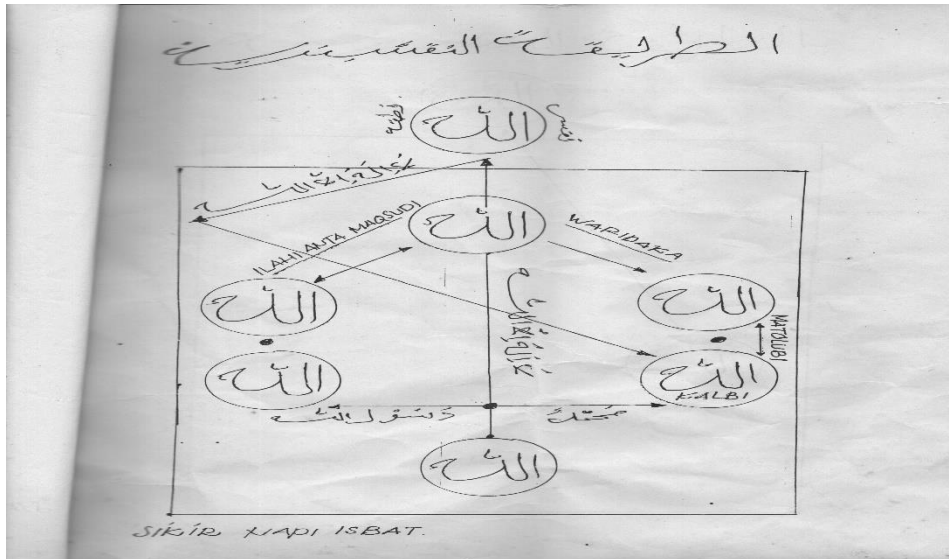 الطريقت النقشبندية
الله
لا إله إلا الله
الله
ILAHI ANTA MAQSUDI
WARIDAKA
الله
الله
لا إله إلا الله
MATOLUBI
الله
الله
KALBI
رسول الله
محمد
الله
SIKIR NAPI ISBAT.